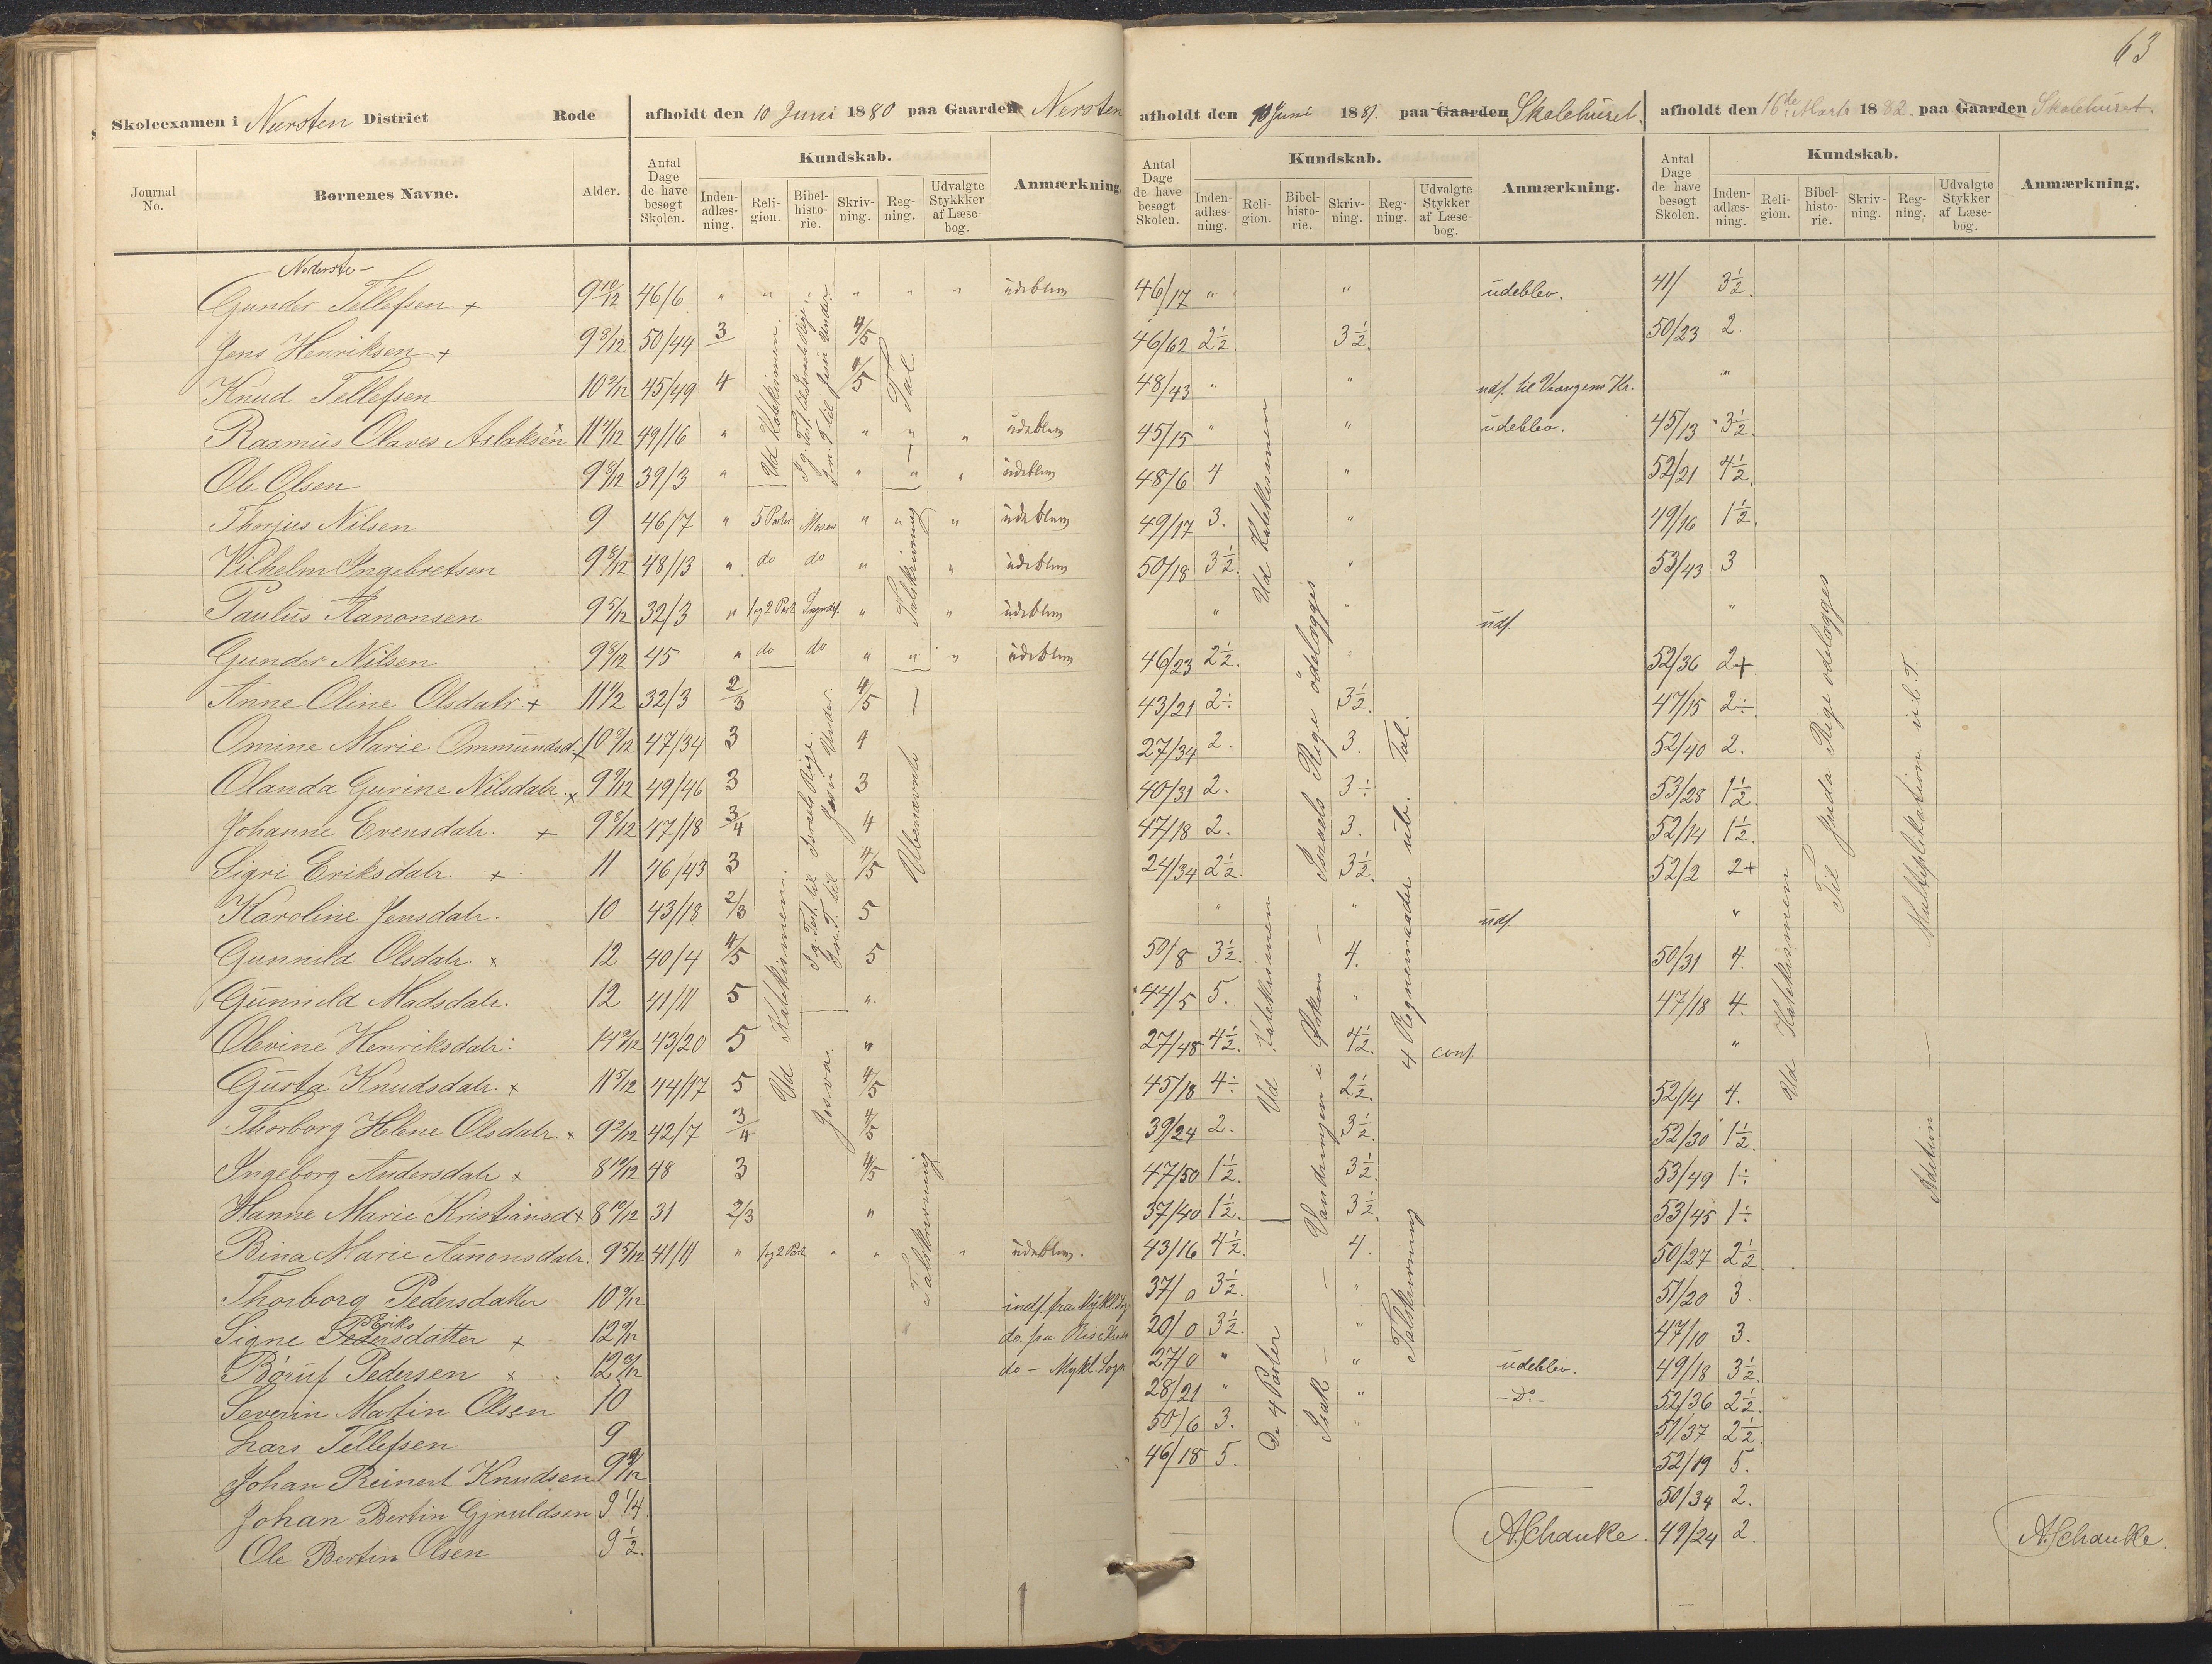 63
Skoleexamen i Nærsten District Rode afholdt den 10 Juni 1880 paa Gaarden Nersten
afholdt den 10 Juni 1881. paa Gaarden Skolehuset.
afholdt den 16de Marts 1882. paa Gaarden Skolehuset.
Journal No. Børnenes Navne. Alder. Antal Dage de have besøgt Skolen. Kundskab. Inden-adlæs-ning. Reli-gion. Bibel-histo-rie. Skriv-ning. Reg-ning. Udvalgte Stykkker af Læse-bog. Anmærkning.
Antal Dage de have besøgt Skolen. Kundskab. Inden-adlæs-ning. Reli-gion. Bibel-histo-rie. Skriv-ning. Reg-ning. Udvalgte Stykker af Læse-bog. Anmærkning.
Antal Dage de have besøgt Skolen. Kundskab. Inden-adlæs-ning. Reli-gion. Bibel-histo-rie. Skriv-ning. Reg-ning. Udvalgte Stykker af Læse-bog. Anmærkning.
Nederste-
Gunder Tellefsen + 9 10/12 46/6 " " " " " " udeblem 46/17 " " udeblev. 41/ 3½.
Jens Henriksen + 9 8/12 50/44 3 4/5 46/62 2½. 3½. 50/23 2.
Knud Tellefsen 10 2/12 45/49 4 4/5 48/43 " " udf. til Vrængens Kr. "
Rasmus Olaves Aslaksen x 11 4/12 49/16 " " " " udeblem 45/15 " " udeblev. 45/13 3½.
Ole Olsen 9 8/12 39/3 " " " " udeblem 48/6 4 " 52/21 4½.
Thorjus Nilsen 9 46/7 " 5 Parter Moses " " " udeblem 49/17 3. " 49/16 1½.
Vilhelm Ingebretsen 9 8/12 48/13 " do do " " udeblem 50/18 3½. " 53/43 3
Paulus Aanonsen 9 5/12 32/3 " 1 og 2 Part " " udeblem " " udf. "
Gunder Nilsen 9 8/12 45 " do do " " " udeblem 46/23 2½. " 52/36 2+
Anne Oline Olsdatr. + 11 1/2 32/3 2/3 4/5 43/21 2÷ 3½. 47/15 2÷
Omine Marie Ommundsd. x 10 8/12 47/34 3 4 27/34 2. 3. 52/40 2.
Olanda Gurine Nilsdatr. x 9 9/12 49/46 3 3 40/31 2. 3÷ 53/28 1½.
Johanne Evensdatr. + 9 8/12 47/18 3/4 4 47/18 2. 3. 52/14 1½.
Sigri Eriksdatr. x 11 46/43 3 4/5 24/34 2½. 3½. 52/2 2+
Karoline Jensdatr. 10 43/18 2/3 5 " " udf. "
Gunnild Olsdatr. x 12 40/4 4/5 5 50/8 3½. 4. 50/31 4.
Gunnild Madsdatr. 12 41/11 5 " 44/5 5. " 47/18 4.
Olevine Henriksdatr. 14 9/12 43/20 5 " 27/48 4½. 4½. conf. "
Gusta Knudsdatr. x 11 5/12 44/17 5 4/5 45/18 4÷ 2½. 52/14 4.
Thorborg Helene Olsdatr. x 9 2/12 42/7 3/4 4/5 39/24 2. 3½. 52/30 1½.
Ingeborg Andersdatr. x 8 10/12 48 3 4/5 47/50 1½. 3½. 53/49 1÷
Hanne Marie Kristiansd. x 8 10/12 31 2/3 " 37/40 1½. 3½. 53/45 1÷
Bina Marie Aanonsdatr. 9 5/12 41/11 " 1 og 2 Part " " " udeblem. 43/16 4½. 4. 50/27 2½.
Thorborg Pedersdatter 10 9/12 indf. fra Mykl. Sogn 37/0 3½. " 51/20 3.
Eriks
Signe Pedersdatter + 12 9/12 do. fra 20/0 3½. " 47/10 3.
Børuf Pedersen x 12 3/12 do - Mykl. Sogn 27/0 " " udeblev. 49/18 3½.
Severin Martin Olsen 10 28/21 " " -Do- 52/36 2½.
Lars Tellefsen 9 50/6 3. " 51/37 2½.
Johan Reinert Knudsen 9 9/12 46/18 5. 52/19 5.
Johan Bertin Gjruldsen 9 1/4. 50/34 2.
Ole Bertin Olsen 9 ½. A. Schanke. 49/24 2. A. Schanke.
Ud Katekismen.
G. Test. til Israels Rige.
N. T. til Jesu Under.
Tal
Talskrivning
Ud Katekismen.
G. Test. til Israels Rige.
N. T. til Jesu Under.
Josva.
Ubenævnte
Talskrivning
Ud Katekismen
Ud Katekismen
De 4 Parter
Israels Rige ödelægges
Vandringen i Örken
Isak
4 Regnemaader ub. Tal.
Talskrivning
Ud Katekismen
Til Juda Rige ödelægges
Multiplikation u. b. T.
Adition